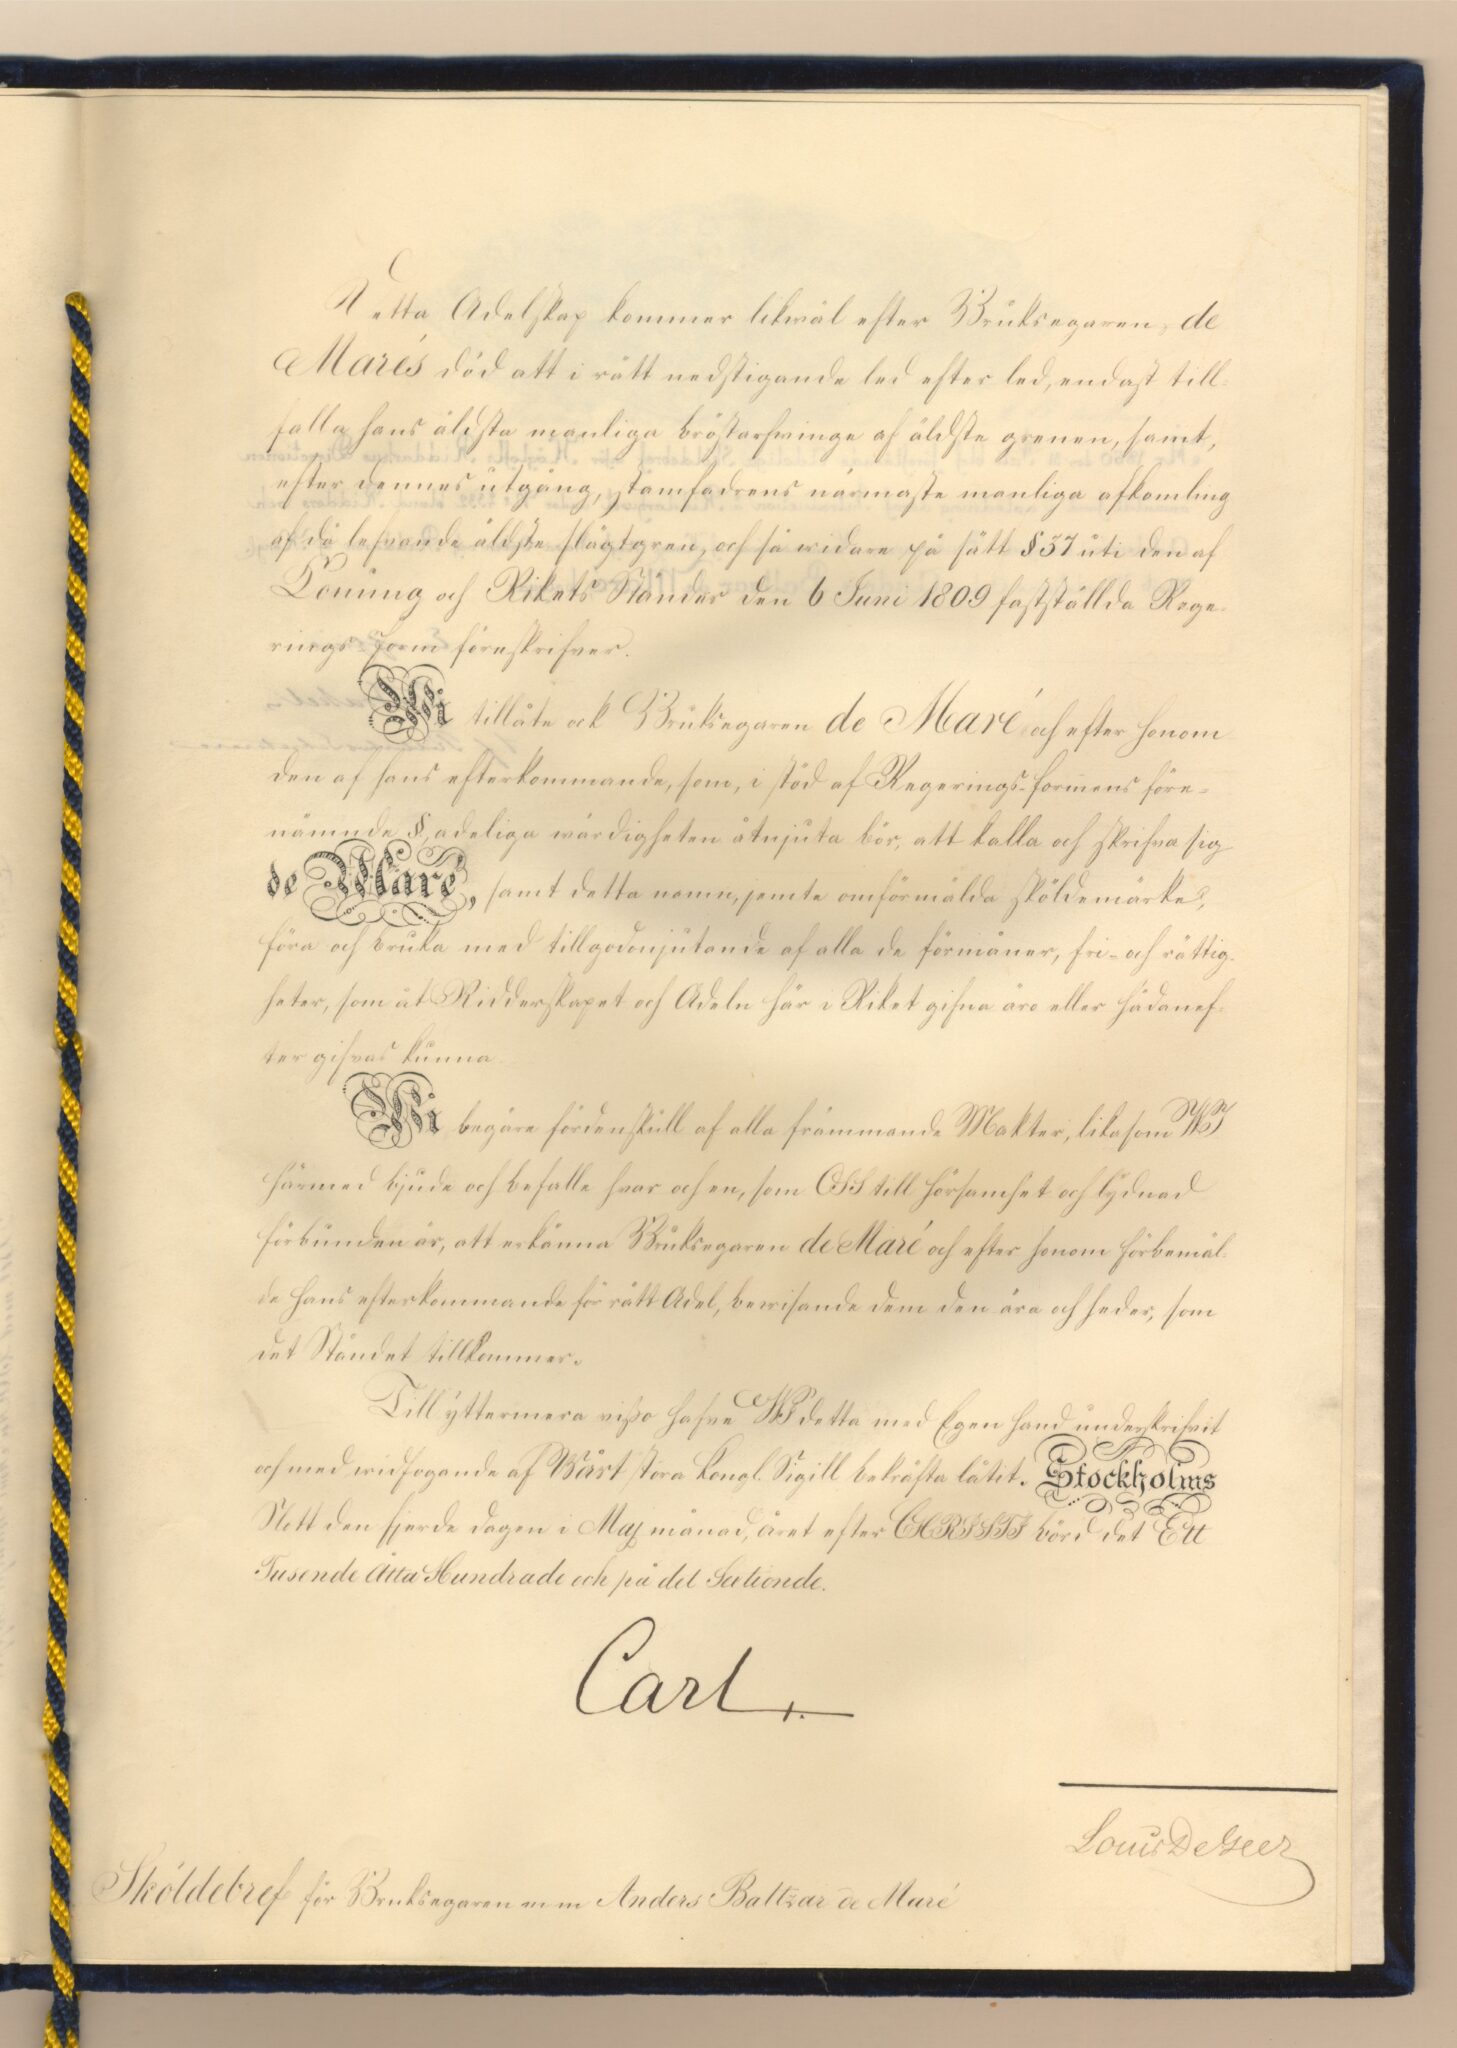 Detta Adelskap kommer likwäl efter Bruksegaren de
Marés död att i rätt nedstigande led efter led, endast till-
falla hans äldsta manliga bröstarfwinge af äldste grenen, samt,
efter dennes utgång, stamfadrens närmaste manliga afkomling
af då lefvande äldste slägtgren, och så widare på sätt § 37 uti den af
Konung och Rikets Ständer den 6 Juni 1809 fastställda Rege-
rings-form föreskrifver.
Wi tillåte ock Bruksegaren de Maré och efter honom
den af hans efterkommande, som, i stöd af Regerings-formens före-
nämnde §, adeliga wärdigheten åtnjuta bör, att kalla och skrifva sig
de Maré, samt detta namn, jemte omförmälda sköldemärke,
föra och bruka med tillgodonjutande af alla de förmåner, fri- och rättig-
heter, som åt Ridderskapet och Adeln här i Riket gifna äro eller hädanef-
ter gifvas kunna.
Wi begäre fördenskull af alla främmande Makter, likasom WI
härmed bjude och befalle hvar och en, som OSS till hörsamhet och lydnad
förbunden är, att erkänna Bruksegaren de Maré och efter honom förbemäl-
de hans efterkommande för rätt Adel, bewisande dem den ära och heder, som
det Ståndet tillkommer.
Till yttermera visso hafve WI detta med Egen hand underskrifvit
och med widfogande af Wårt stora Kongl. Sigill bekräfta låtit. Stockholms
Slott den fjerde dagen i Maj månad, året efter CHRISTI börd det Ett
Tusende Åtta Hundrade och på det Sextionde.
Carl
Louis De Geer
Sköldebref för Bruksegaren m m Anders Baltzar de Maré